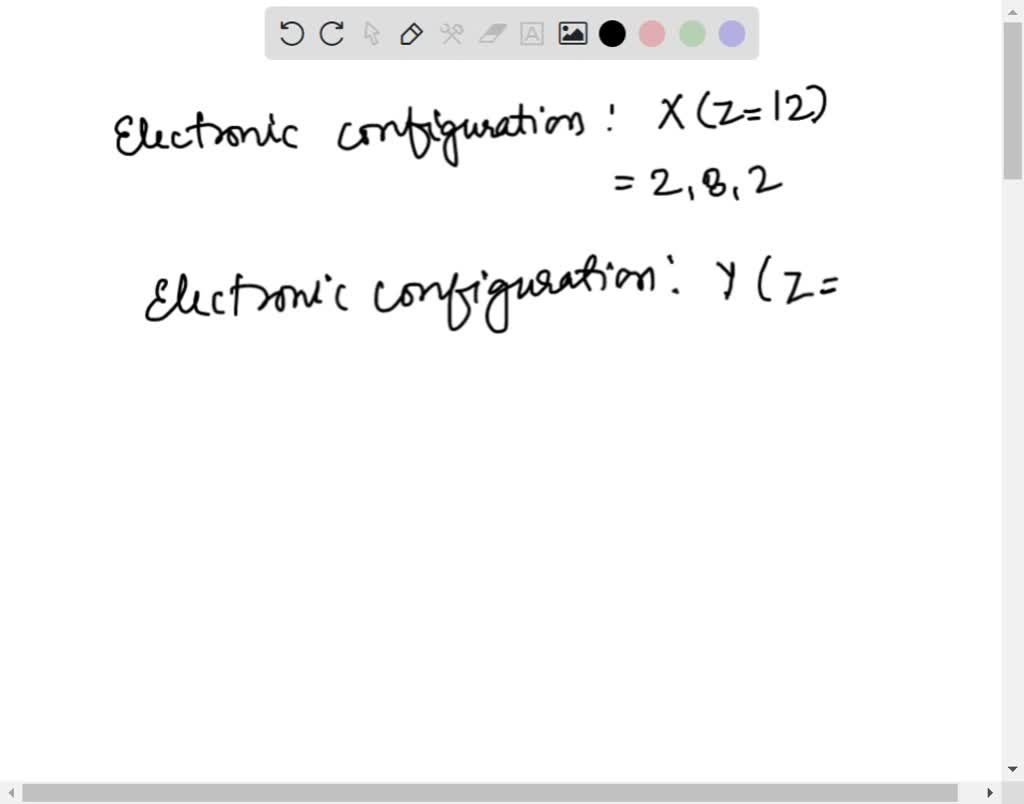 Electronic configuration: X (Z=12)
= 2, 8, 2
Electronic configuration: Y (Z=